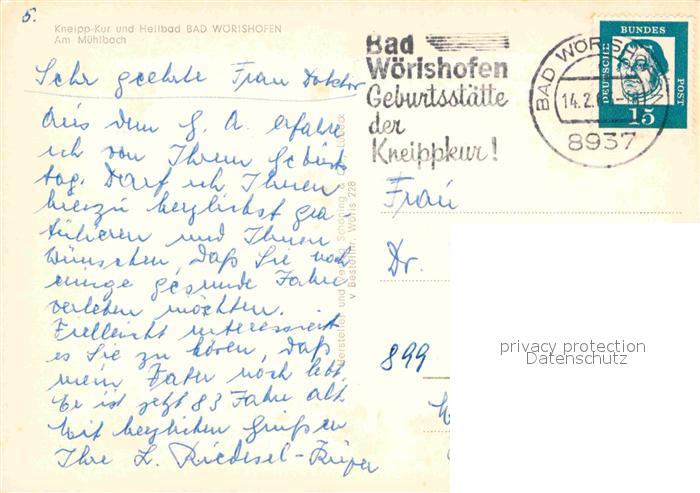 5.
Kneipp-Kur und Heilbad BAD WÖRISHOFEN
Am Mühlbach
Sehr geehrte Frau Doktor
Aus dem G. A. erfahre
ich von Ihrem Geburts
tag. Darf ich Ihnen
hierzu herzlichst gra
tulieren und Ihnen
wünschen, daß Sie noch
einige gesunde Jahre
verleben möchten.
Vielleicht interessiert
es Sie zu hören, daß
mein Vater noch lebt.
Er ist jetzt 83 Jahre alt.
Mit herzlichen Grüßen
Ihre L. Riedesel-
Hersteller und Verlag Schöning & Lübeck
Bestellnr. Wöris 228
Bad
Wörishofen
Geburtsstätte
der
Kneippkur!
BAD WÖRISHOFEN
14.2.6
8937
DEUTSCHE BUNDES POST
15
Frau
Dr.
899
privacy protection
Datenschutz